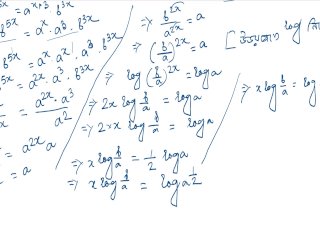 = a^{x+3} · b^{3x}
b^{5x} = a^x · a^3 · b^{3x}
b^{5x} = a^x · a^x · a^3 · b^{3x}
= a^{2x} · a^3 · b^{3x}
= \frac{a^{2x} · a^3}{a^2}
= a^{2x} a
= a
⇒ \frac{b^{2x}}{a^{2x}} = a
⇒ (\frac{b}{a})^{2x} = a
⇒ log(\frac{b}{a})^{2x} = log a
⇒ 2x log \frac{b}{a} = log a
⇒ 2×x log \frac{b}{a} = log a
⇒ x log \frac{b}{a} = \frac{1}{2} log a
⇒ x log \frac{b}{a} = log a^{\frac{1}{2}}
[উভয়পক্ষে log নি
⇒ x log \frac{b}{a} = log